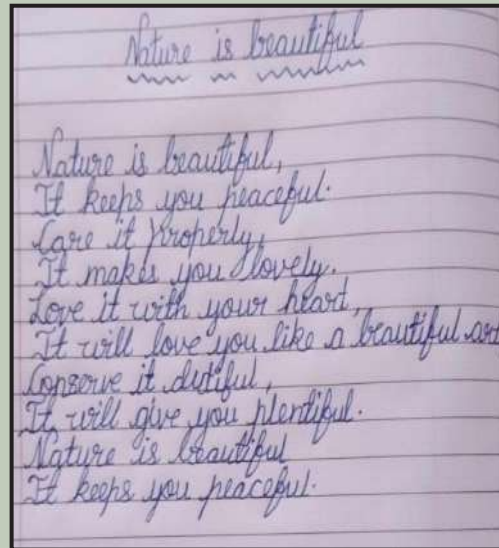 Nature is beautiful
Nature is beautiful,
It keeps you peaceful.
Care it properly,
It makes you lovely.
Love it with your heart,
It will love you like a beautiful art
Conserve it dutiful,
It will give you plentiful.
Nature is beautiful
It keeps you peaceful.